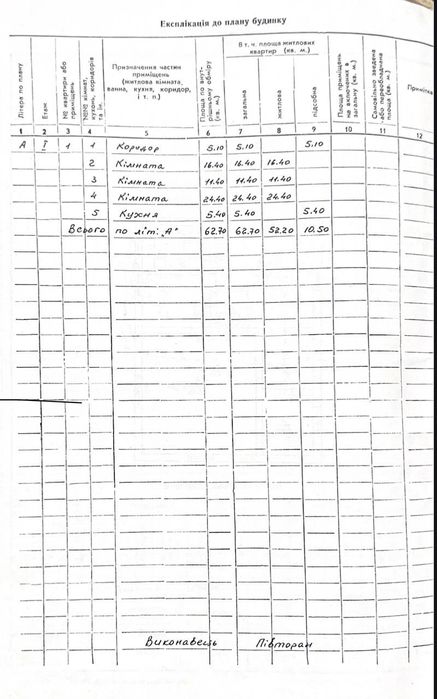 Експлікація до плану будинку
Літера по плану
Етаж
№ квартири або приміщень
№№ кімнат, кухонь, коридорів та ін.
Призначення частин приміщень (житлова кімната, ванна, кухня, коридор, і т. п.)
Площа по внутрішньому обміру (кв. м.)
В т. ч. площа житлових квартир (кв. м.)
загальна
житлова
підсобна
Площа приміщень не включених в загальну (кв. м.)
Самовільно зведена або переобладнана площа (кв. м.)
Примітка
1 2 3 4 5 6 7 8 9 10 11 12
А I 1 1 Коридор 5.10 5.10 5.10
2 Кімната 16.40 16.40 16.40
3 Кімната 11.40 11.40 11.40
4 Кімната 24.40 24.40 24.40
5 Кухня 5.40 5.40 5.40
Всього по літ: „А" 62.70 62.70 52.20 10.50
Виконавець Півторан